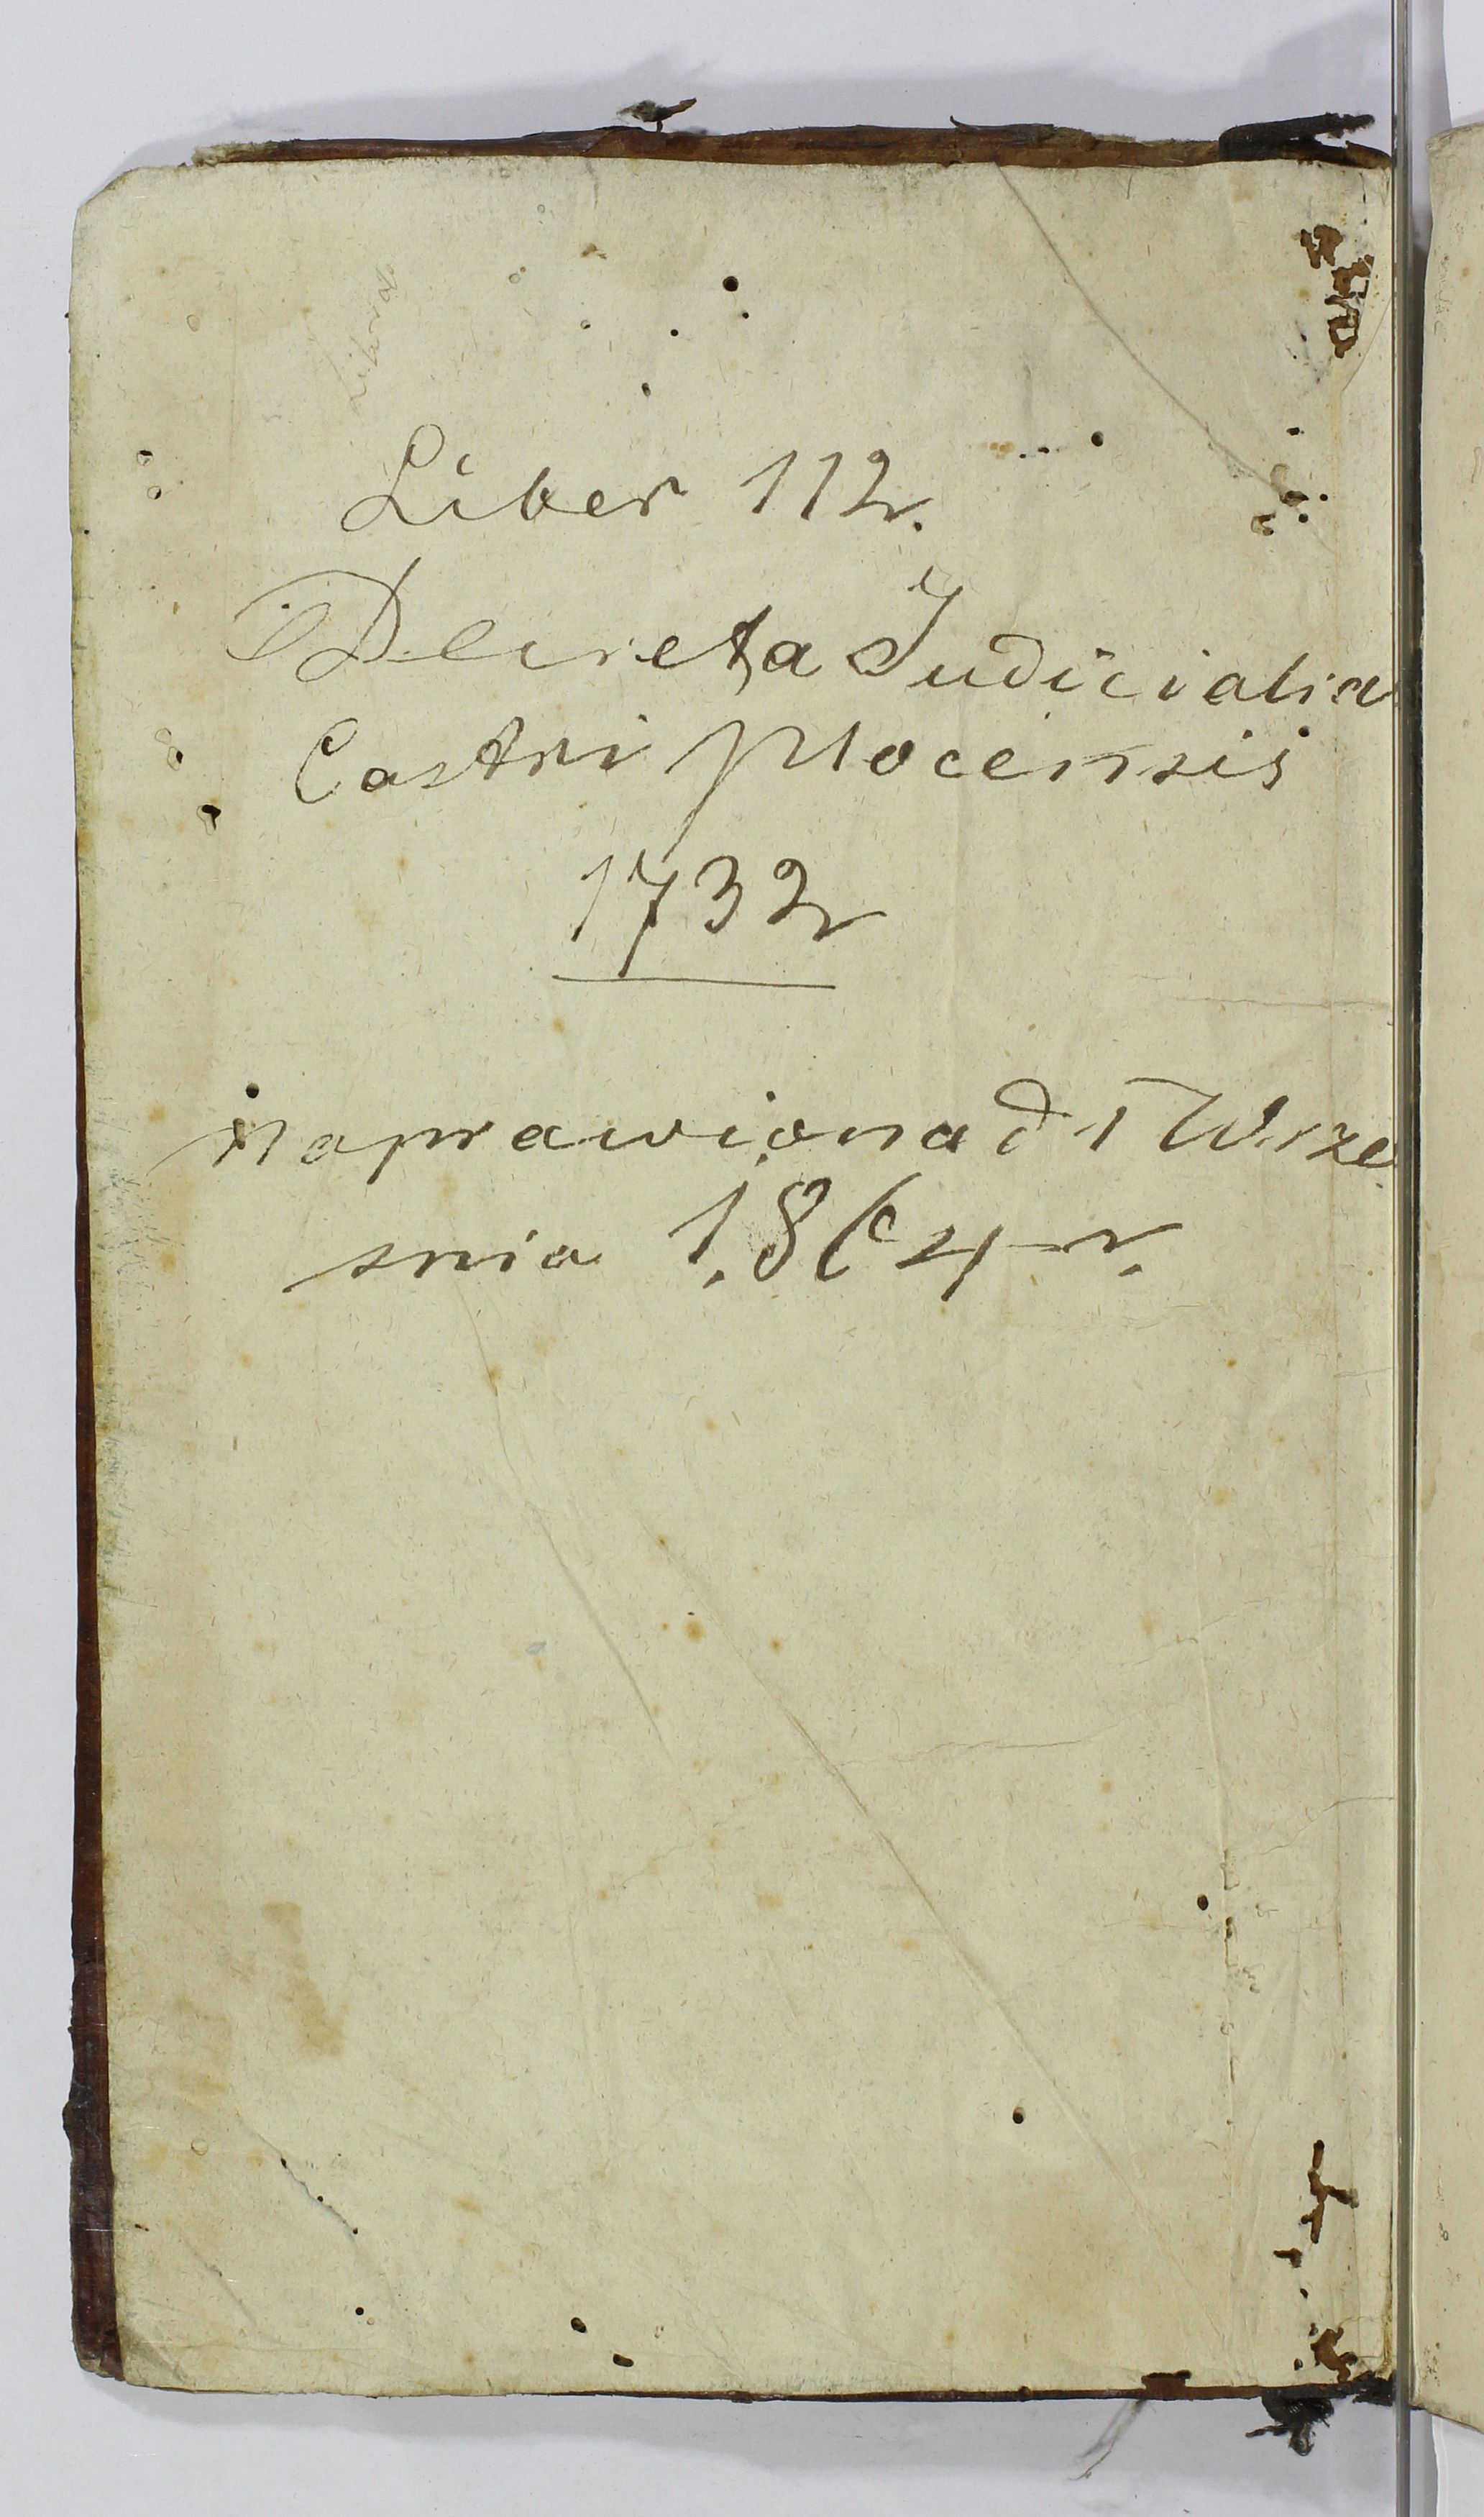 Liber 112.
Decreta Judicialia
Castri plocensis
1732
naprawiona d 1 Wrze
snia 1864 r.